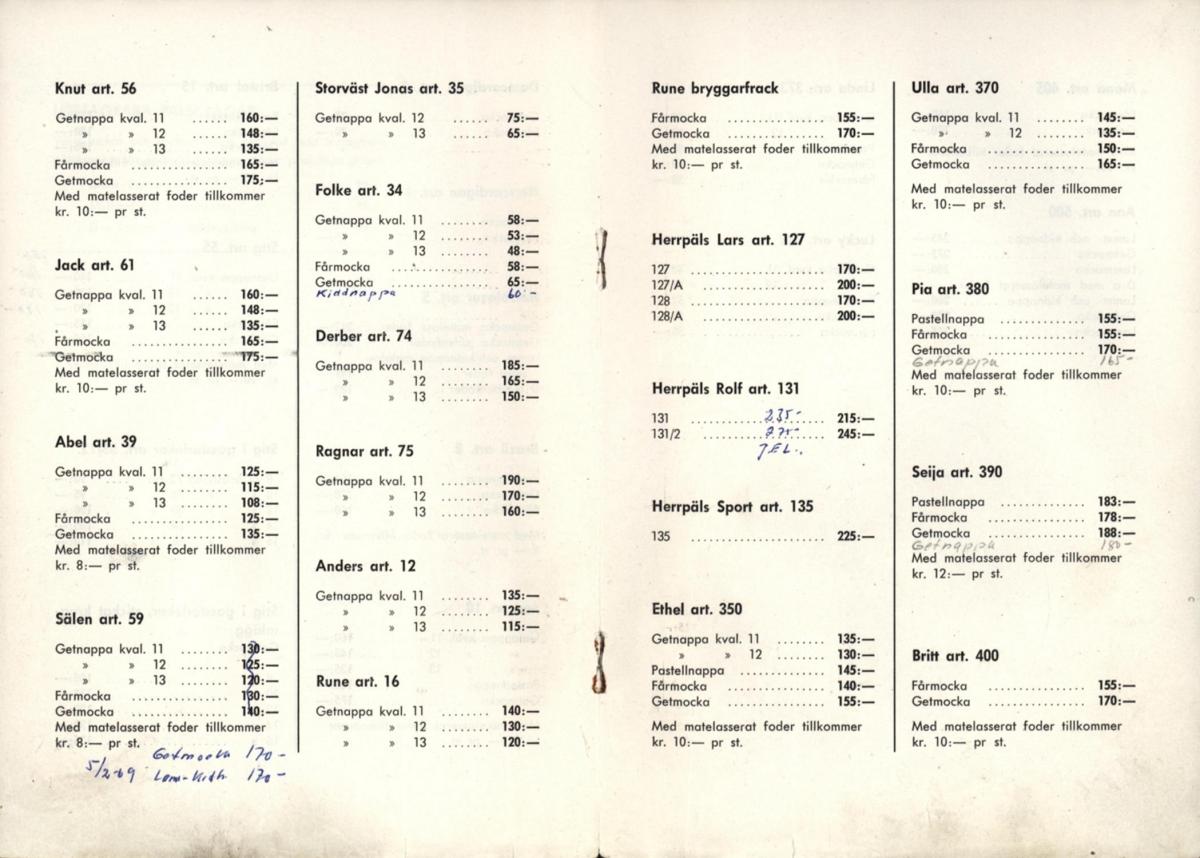 Knut art. 56
Getnappa kval. 11 ...... 160:—
» » 12 ...... 148:—
» » 13 ...... 135:—
Fårmocka ................ 165:—
Getmocka ................ 175:—
Med matelasserat foder tillkommer
kr. 10:— pr st.
Jack art. 61
Getnappa kval. 11 ...... 160:—
» » 12 ...... 148:—
» » 13 ...... 135:—
Fårmocka ................ 165:—
Getmocka ................ 175:—
Med matelasserat foder tillkommer
kr. 10:— pr st.
Abel art. 39
Getnappa kval. 11 ........ 125:—
» » 12 ........ 115:—
» » 13 ........ 108:—
Fårmocka ................ 125:—
Getmocka ................ 135:—
Med matelasserat foder tillkommer
kr. 8:— pr st.
Sälen art. 59
Getnappa kval. 11 ........ 130:—
» » 12 ........ 125:—
» » 13 ........ 120:—
Fårmocka ................ 130:—
Getmocka ................ 140:—
Med matelasserat foder tillkommer
kr. 8:— pr st.
Getmocka 170-
5/2-69 170-
Storväst Jonas art. 35
Getnappa kval. 12 ........ 75:—
» » 13 ........ 65:—
Folke art. 34
Getnappa kval. 11 ........ 58:—
» » 12 ........ 53:—
» » 13 ........ 48:—
Fårmocka ................ 58:—
Getmocka ................ 65:—
Kiddnappa 60-
Derber art. 74
Getnappa kval. 11 ........ 185:—
» » 12 ........ 165:—
» » 13 ........ 150:—
Ragnar art. 75
Getnappa kval. 11 ........ 190:—
» » 12 ........ 170:—
» » 13 ........ 160:—
Anders art. 12
Getnappa kval. 11 ........ 135:—
» » 12 ........ 125:—
» » 13 ........ 115:—
Rune art. 16
Getnappa kval. 11 ........ 140:—
» » 12 ........ 130:—
» » 13 ........ 120:—
Rune bryggarfrack
Fårmocka ................ 155:—
Getmocka ................ 170:—
Med matelasserat foder tillkommer
kr. 10:— pr st.
Herrpäls Lars art. 127
127 ........................ 170:—
127/A ...................... 200:—
128 ........................ 170:—
128/A ...................... 200:—
Herrpäls Rolf art. 131
131 ............ 235- .... 215:—
131/2 ............ 275- .... 245:—
Herrpäls Sport art. 135
135 ........................ 225:—
Ethel art. 350
Getnappa kval. 11 ........ 135:—
» » 12 ........ 130:—
Pastellnappa ................ 145:—
Fårmocka ................ 140:—
Getmocka ................ 155:—
Med matelasserat foder tillkommer
kr. 10:— pr st.
Ulla art. 370
Getnappa kval. 11 ........ 145:—
» » 12 ........ 135:—
Fårmocka ................ 150:—
Getmocka ................ 165:—
Med matelasserat foder tillkommer
kr. 10:— pr st.
Pia art. 380
Pastellnappa ................ 155:—
Fårmocka ................ 155:—
Getmocka ................ 170:—
Getnappa 165-
Med matelasserat foder tillkommer
kr. 10:— pr st.
Seija art. 390
Pastellnappa ................ 183:—
Fårmocka ................ 178:—
Getmocka ................ 188:—
Getnappa 180-
Med matelasserat foder tillkommer
kr. 12:— pr st.
Britt art. 400
Fårmocka ................ 155:—
Getmocka ................ 170:—
Med matelasserat foder tillkommer
kr. 10:— pr st.